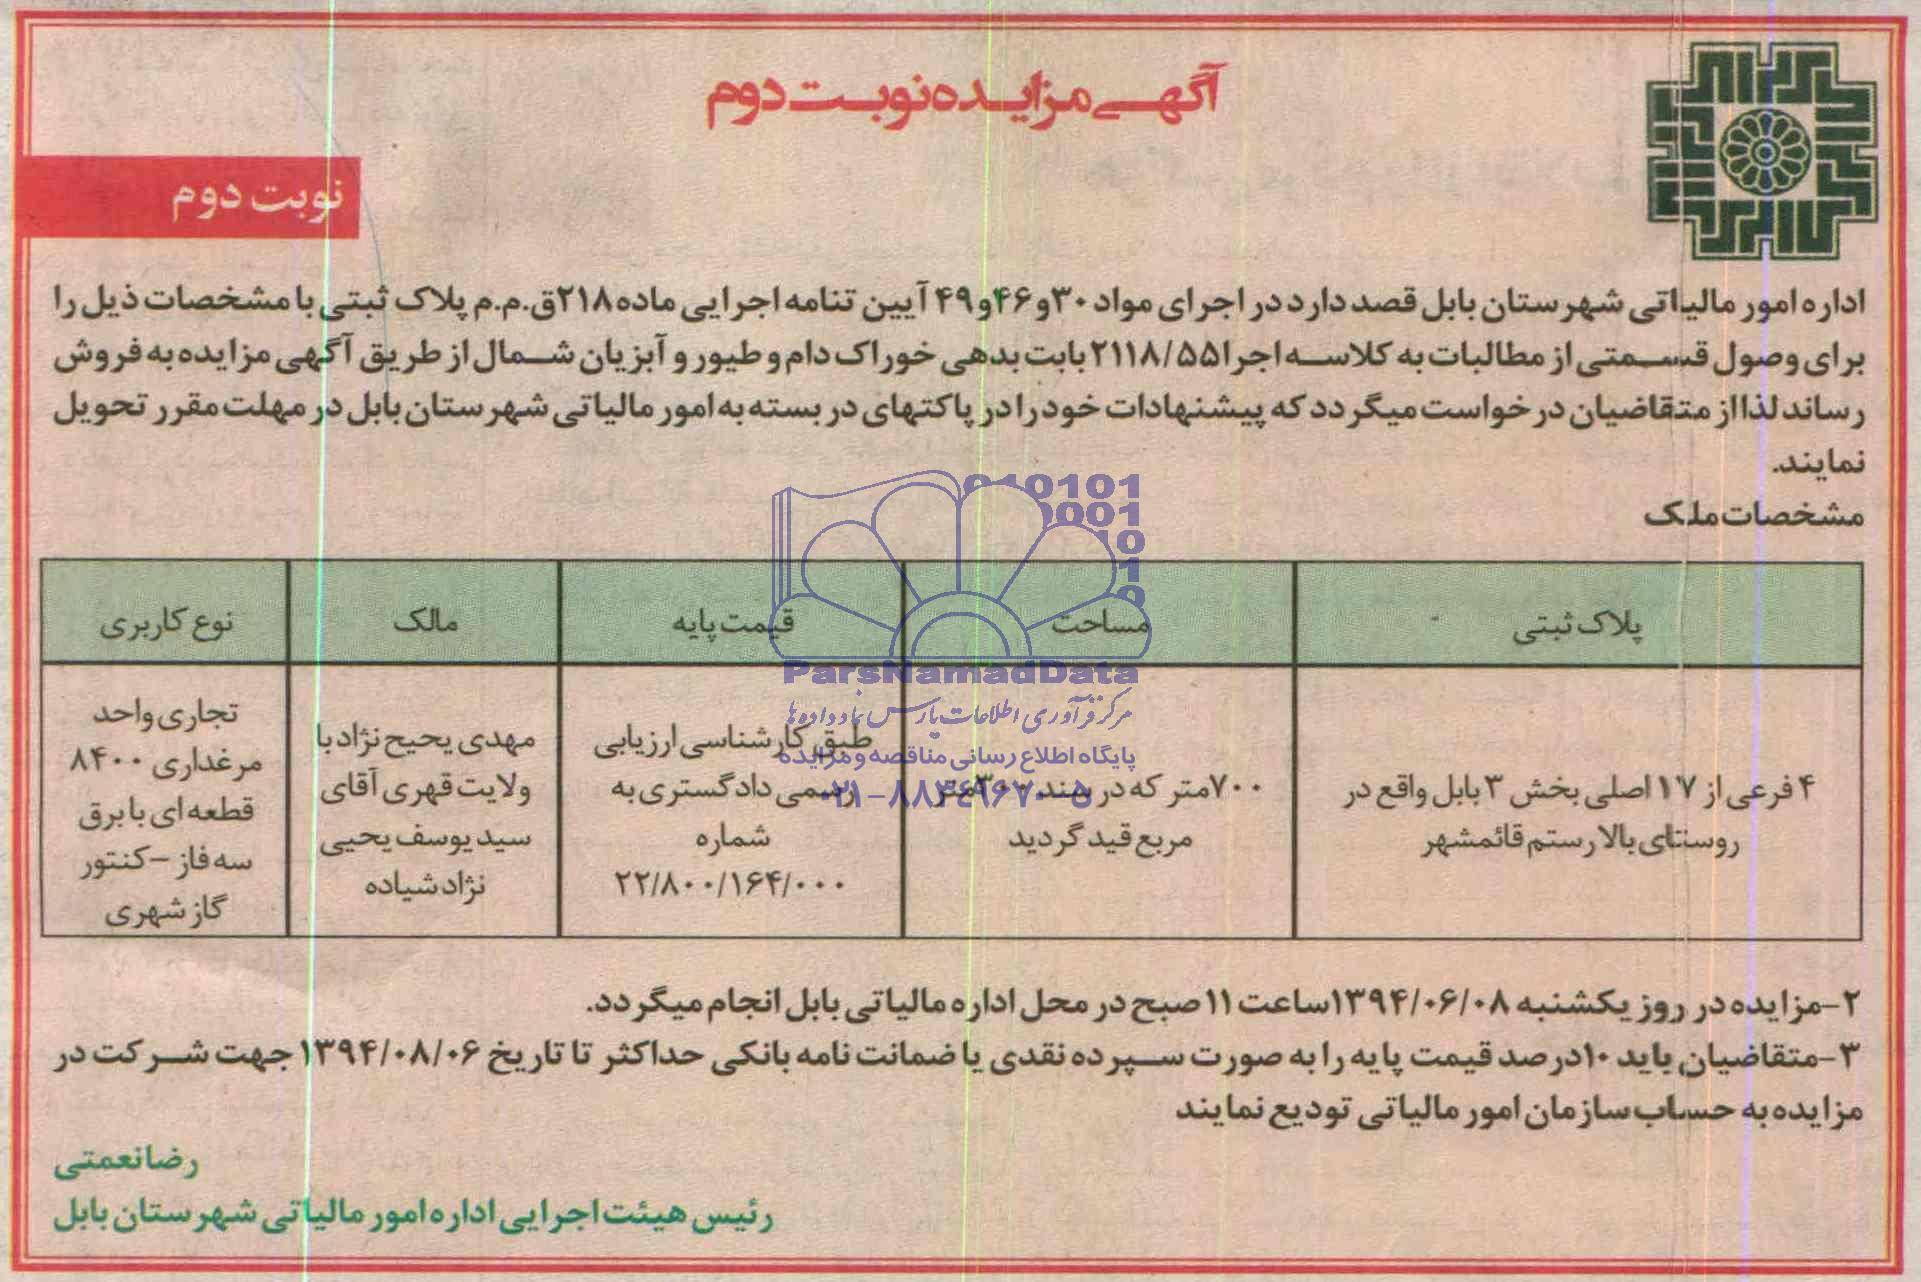 آگهی مزایده نوبت دوم
نوبت دوم
اداره امور مالیاتی شهرستان بابل قصد دارد در اجرای مواد ۳۰و۴۶و۴۹ آیین تنامه اجرایی ماده ۲۱۸ق.م.م پلاک ثبتی با مشخصات ذیل را
برای وصول قسمتی از مطالبات به کلاسه اجرا ۲۱۱۸/۵۵ بابت بدهی خوراک دام و طیور و آبزیان شمال از طریق آگهی مزایده به فروش
رساند لذا از متقاضیان درخواست میگردد که پیشنهادات خود را در پاکتهای در بسته به امور مالیاتی شهرستان بابل در مهلت مقرر تحویل
نمایند.
مشخصات ملک
پلاک ثبتی مساحت قیمت پایه مالک نوع کاربری
۴ فرعی از ۱۷ اصلی بخش ۳ بابل واقع در
روستای بالا رستم قائمشهر
۷۰۰متر که در سند متر
مربع قید گردید
طبق کارشناسی ارزیابی
رسمی دادگستری به
شماره
۲۲/۸۰۰/۱۶۴/۰۰۰
مهدی یحیح نژاد با
ولایت قهری آقای
سید یوسف یحیی
نژاد شیاده
تجاری واحد
مرغداری ۸۴۰۰
قطعه ای با برق
سه فاز -کنتور
گاز شهری
010101
0001
10
1
0
ParsNamadData
مرکز فرآوری اطلاعات پارس نماد داده ها
پایگاه اطلاع رسانی مناقصه و مزایده
۰۲۱-۸۸۳۴۹۶۷۰-۵
۲-مزایده در روز یکشنبه ۱۳۹۴/۰۶/۰۸ساعت ۱۱ صبح در محل اداره مالیاتی بابل انجام میگردد.
۳-متقاضیان باید ۱۰درصد قیمت پایه را به صورت سپرده نقدی یا ضمانت نامه بانکی حداکثر تا تاریخ ۱۳۹۴/۰۸/۰۶ جهت شرکت در
مزایده به حساب سازمان امور مالیاتی تودیع نمایند
رضا نعمتی
رئیس هیئت اجرایی اداره امور مالیاتی شهرستان بابل